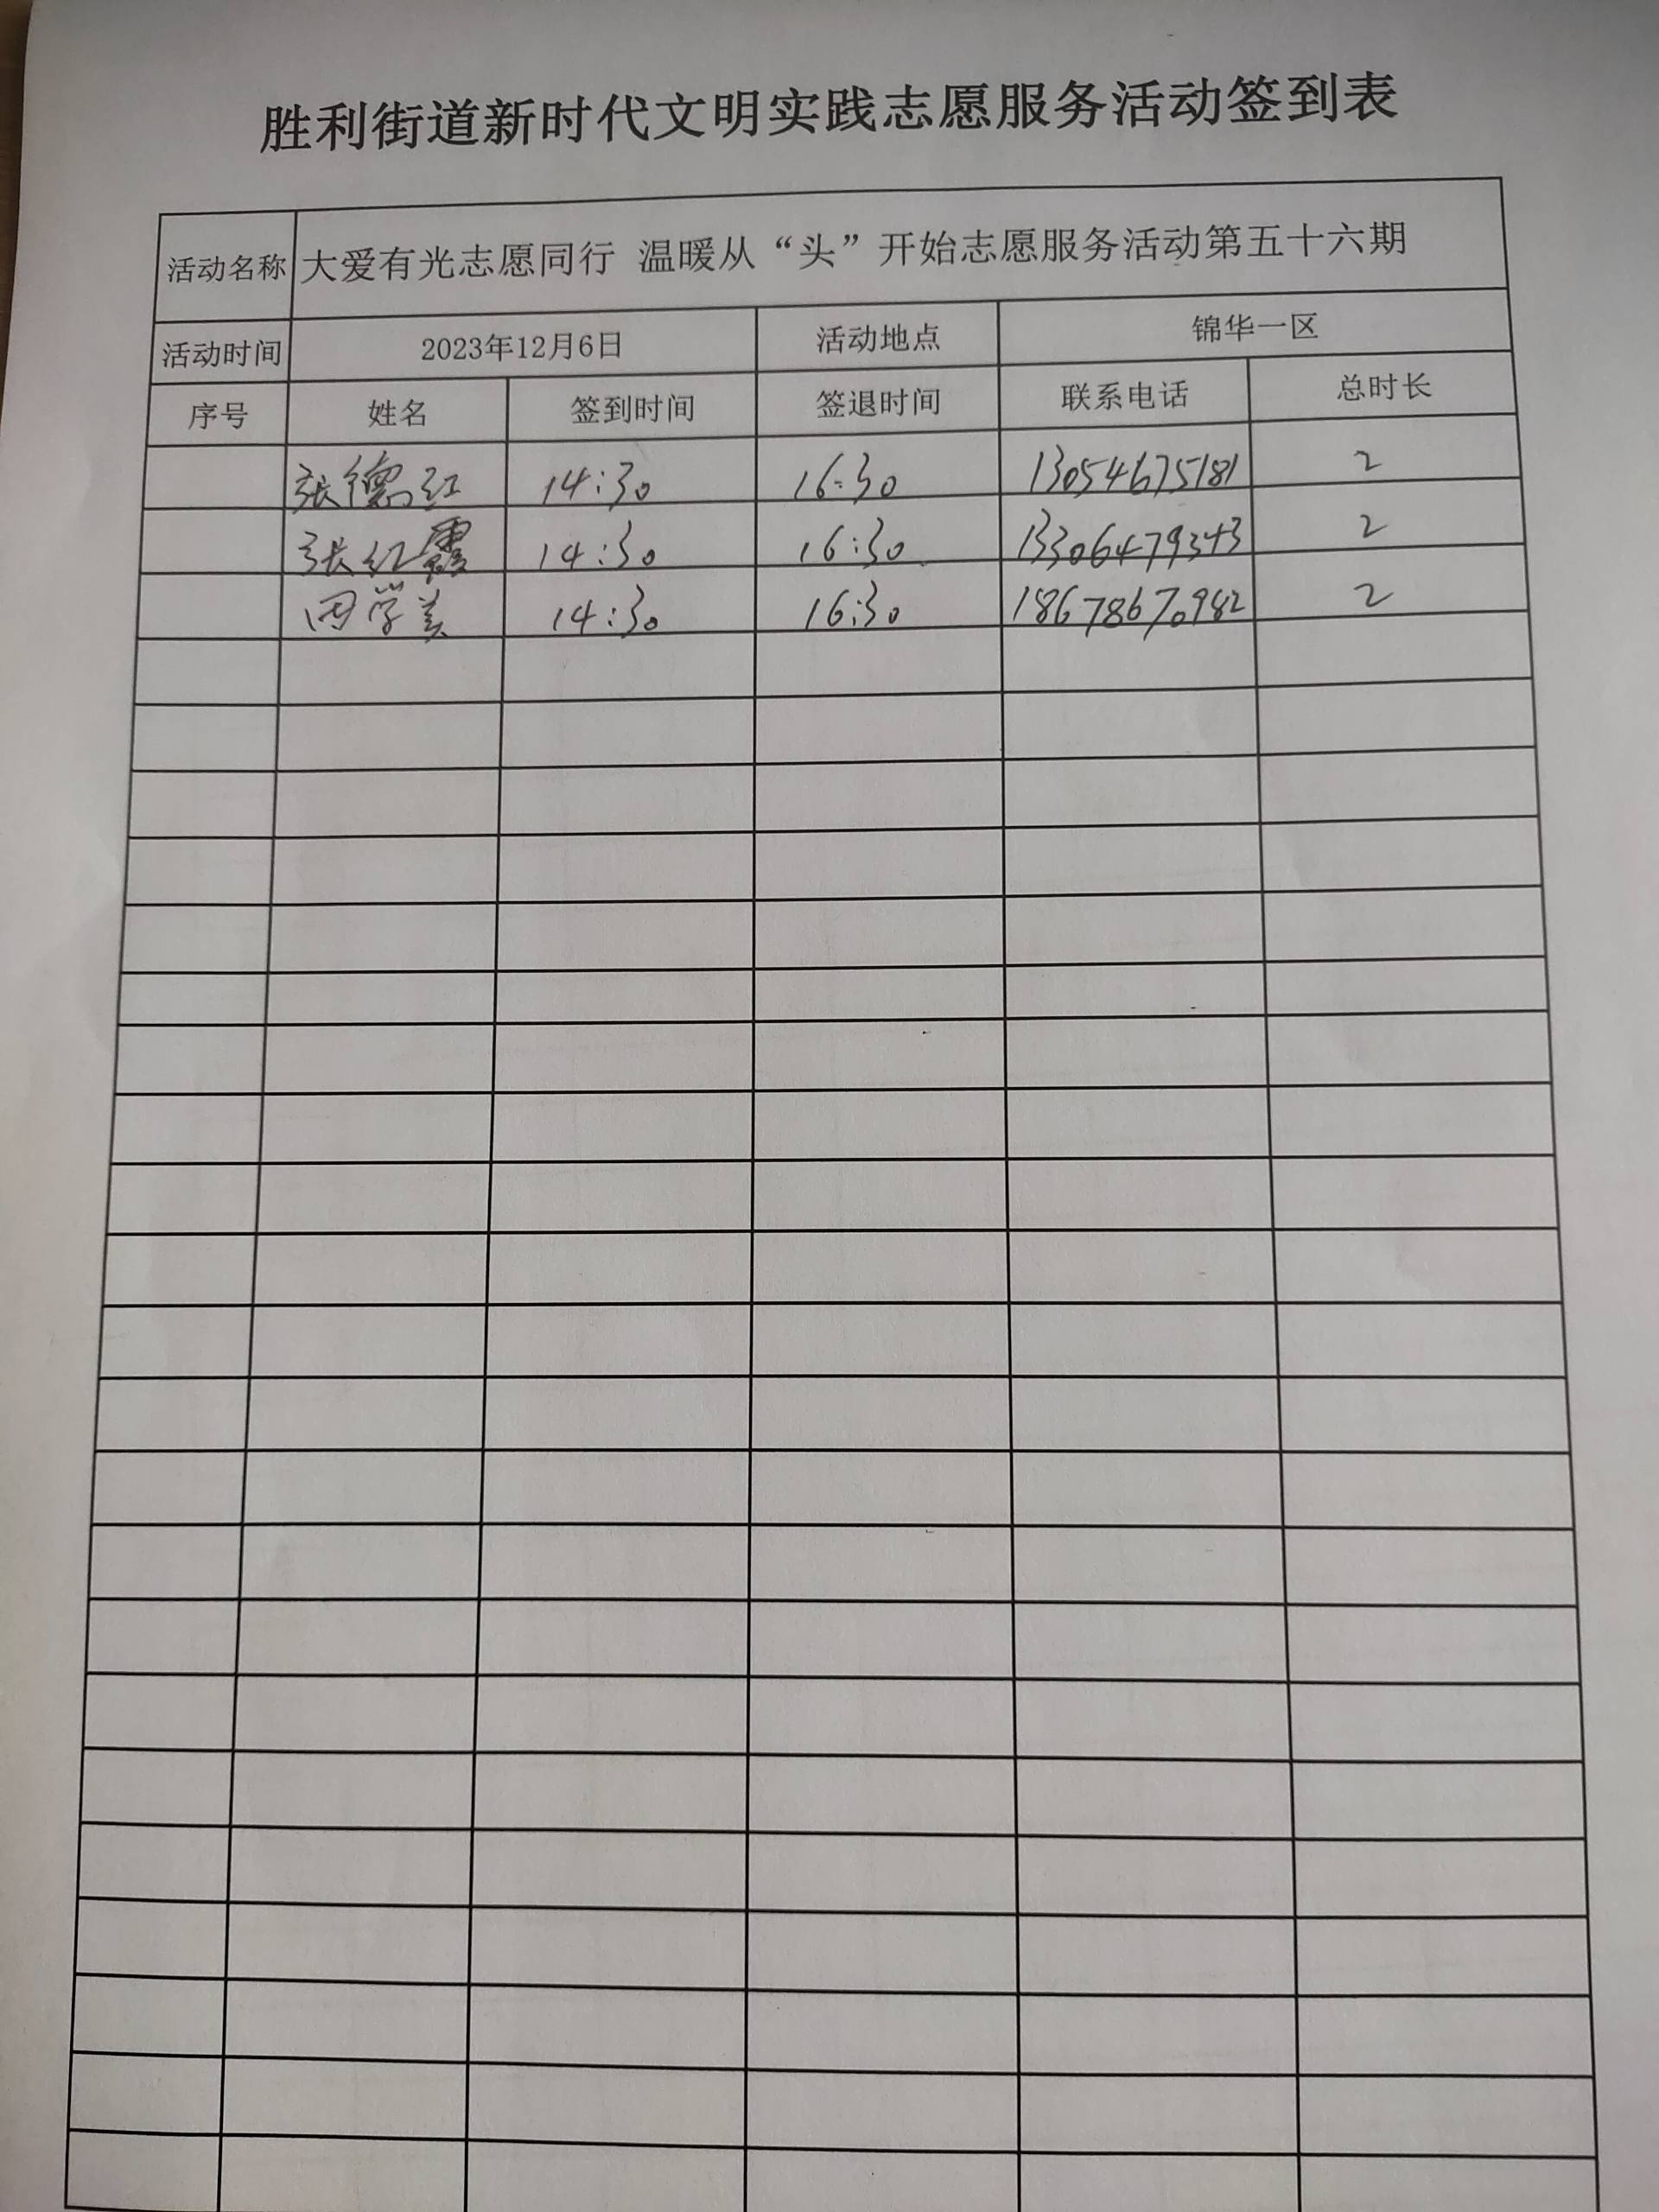 胜利街道新时代文明实践志愿服务活动签到表
活动名称 大爱有光志愿同行 温暖从“头”开始志愿服务活动第五十六期
活动时间 2023年12月6日 活动地点 锦华一区
序号 姓名 签到时间 签退时间 联系电话 总时长
张德红 14:30 16:30 13054675181 2
张红霞 14:30 16:30 13306479343 2
田学美 14:30 16:30 18678670982 2